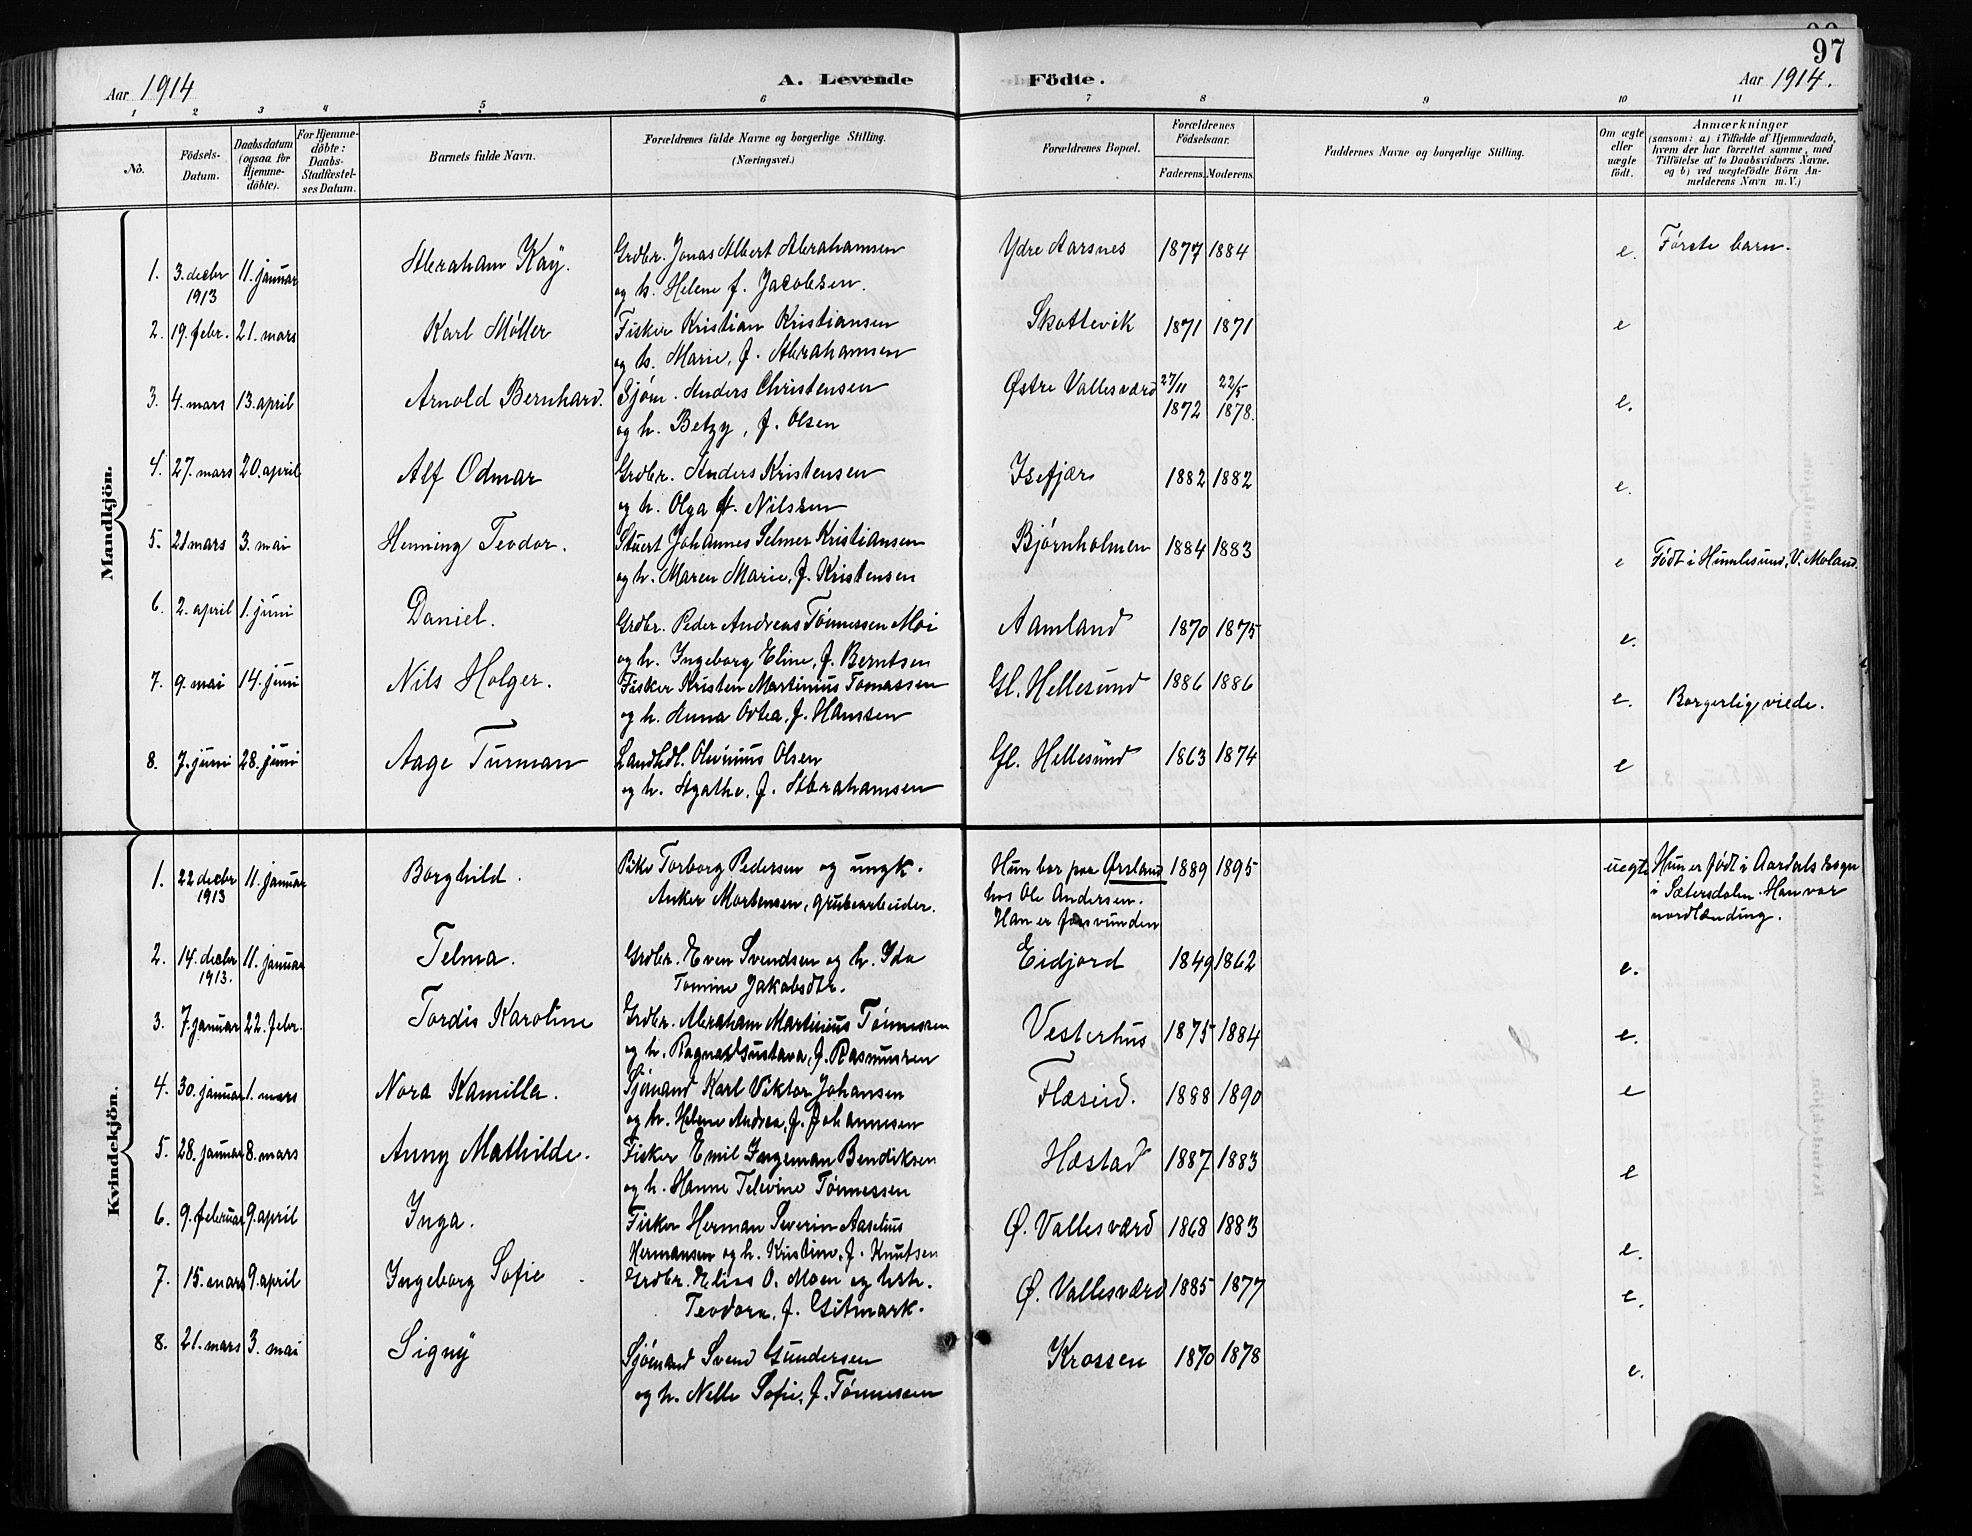 97
Aar 1914
A. Levende
Födte.
Aar 1914.
1 2 3 4 5 6 7 8 9 10 11
No.
Födsels-
Datum.
Daabsdatum
(ogsaa for
Hjemme-
döbte).
For Hjemme-
döbte:
Daabs-
Stadfæstel-
ses Datum.
Barnets fulde Navn.
Forældrenes fulde Navne og borgerlige Stilling.
(Næringsvei.)
Forældrenes Bopæl.
Forældrenes
Födselsaar.
Faderens. Moderens.
Faddernes Navne og borgerlige Stilling.
Om ægte
eller
uægte
födt.
Anmærkninger
(saasom: a) i Tilfælde af Hjemmedaab,
hvem der har forrettet samme, med
Tilföielse af to Daabsvidners Navne,
og b) ved uægtefödte Börn An-
melderens Navn m. V.)
Mandkjön.
1. 3. decbr 1913 11. januar Abraham Kay. Grdbr. Jonas Albert Abrahamsen Ydre Aarsnes 1877 1884 e. Første barn.
og h. Helene f. Jacobsen.
2. 19. febr. 21. mars Karl Møller Fisker Kristian Kristiansen Skottevik 1871 1871 e
og h. Marie, f. Abrahamsen
3. 4. mars 13. april Arnold Bernhard. Sjøm. Anders Christensen Østre Vallesværd 27/11 1872 22/5 1878. e.
og h. Betzy, f. Olsen
4. 27. mars 20. april Alf Odmar Grdbr. Anders Kristensen Isefjær 1882 1882 e.
og h. Olga f. Nilssen
5. 21 mars 3. mai Henning Teodor. Stuert Johannes Selmer Kristiansen Bjørnholmen 1884 1883 e Født i Humlesund, V. Moland.
og h. Maren Marie, f. Kristensen
6. 2. april 1. juni Daniel. Grdbr. Peder Andreas Tønnessen Moi Aamland 1870 1875 e.
og h. Ingeborg Eline, f. Berntsen
7. 9. mai 14. juni Nils Holger. Fisker Kristen Martinius Tomassen Gl. Hellesund 1886 1886 e. Borgerlig viede.
og h. Anna Ovtea, f. Hanssen
8. 7. juni 28. juni Aage Turman Landhdl. Olvinius Olsen Gl. Hellesund 1863 1874 e
og h. Agathe, f. Abrahamsen
Kvindekjön.
1. 22 decbr 1913 11. januar Borghild. Pike Torborg Pedersen og ungk. Hun bor paa Ørsland 1889 1895 uegte Hun er født i Aardals sogn
Anker Mortensen, grubearbeider. hos Ole Andersen. i Sætersdalen. Han var
Han er forsvunden nordlænding.
2. 14. decbr 1913. 11. januar Telma. Grdbr. Even Svendsen og h. Ida Eidjord 1849 1862 e.
Tomine Jakobsdtr.
3. 7. januar 22. febr. Tordis Karoline Grdbr. Abraham Martinius Tønnessen Vesterhus 1875 1884 e.
og h. Ragna Gustava, f. Rasmussen
4. 30. januar 1. mars Nora Kamilla. Sjømand Karl Viktor Johansen Flæsund. 1888 1890 e
og h. Helene Andrea, f. Johannesen
5. 28. januar 8. mars Anny Mathilde. Fisker Emil Ingeman Bendiksen Hæstad 1887 1883 e
og h. Hanne Televine Tønnessen
6. 9. februar 9. april Inga. Fisker Herman Severin Aaselius Ø. Vallesværd 1868 1883 e.
Hermansen og h. Kristine, f. Knutsen
7. 15. mars 9. april Ingeborg Sofie Grdbr. Elias O. Moen og hstr. Ø. Vallesværd 1885 1877 e.
Teodora, f. Gitmark.
8. 21. mars 3. mai Signy Sjømand Svend Gundersen Krossen 1870 1878 e.
og h. Nelle Sofie, f. Tønnessen